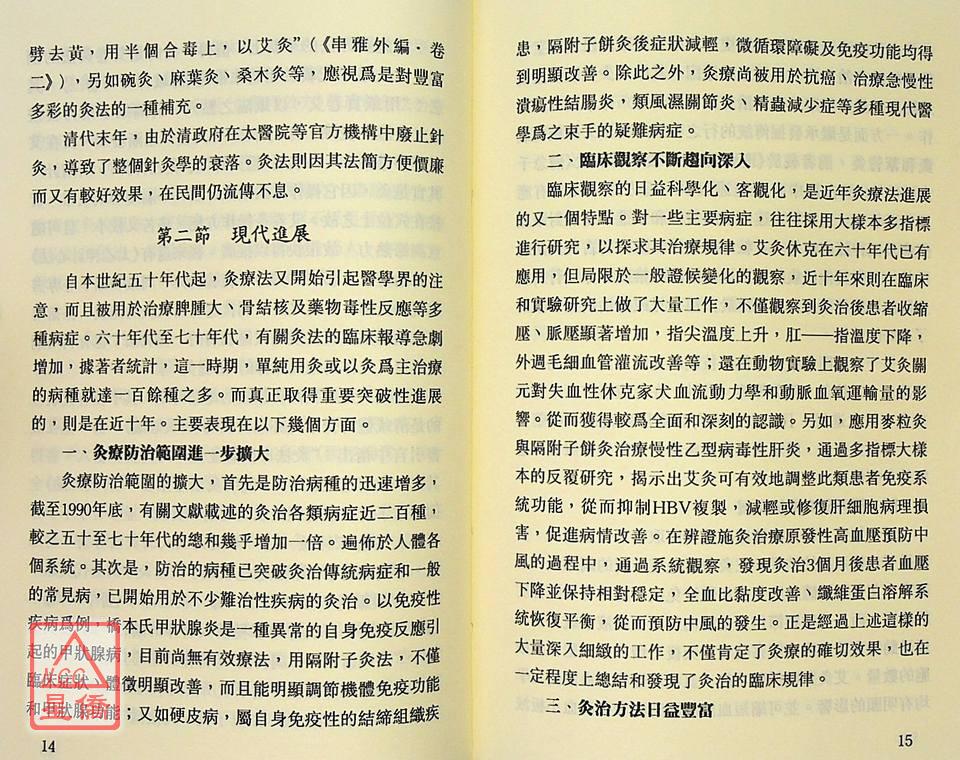 劈去黃，用半個合毒上，以艾灸”(《串雅外編·卷
二》)，另如碗灸、麻葉灸、桑木灸等，應視爲是對豐富
多彩的灸法的一種補充。
清代末年，由於清政府在太醫院等官方機構中廢止針
灸，導致了整個針灸學的衰落。灸法則因其法简方便價廉
而又有較好效果，在民間仍流傳不息。
第二節 現代進展
自本世紀五十年代起，灸療法又開始引起醫學界的注
意，而且被用於治療脾腫大、骨結核及藥物毒性反應等多
種病症。六十年代至七十年代，有關灸法的臨床報導急劇
增加，據著者統計，這一時期，單純用灸或以灸爲主治療
的病種就達一百餘種之多。而真正取得重要突破性進展
的，則是在近十年。主要表現在以下幾個方面。
一、灸療防治範圍進一步擴大
灸療防治範圍的擴大，首先是防治病種的迅速增多，
截至1990年底，有關文獻載述的灸治各類病症近二百種，
較之五十至七十年代的總和幾乎增加一倍。遍佈於人體各
個系統。其次是，防治的病種已突破灸治傳統病症和一般
的常見病，已開始用於不少難治性疾病的灸治。以免疫性
疾病爲例，橋本氏甲狀腺炎是一種異常的自身免疫反應引
起的甲狀腺病，目前尚無有效療法，用隔附子灸法，不僅
臨床症狀、體徵明顯改善，而且能明顯調節機體免疫功能
和甲狀腺功能；又如硬皮病，屬自身免疫性的結締組織疾
KCC
量僑
14
患，隔附子餅灸後症狀減輕，微循環障礙及免疫功能均得
到明顯改善。除此之外，灸療尚被用於抗癌、治療急慢性
潰瘍性結腸炎，類風濕關節炎，精蟲減少症等多種現代醫
學爲之束手的疑難病症。
二、臨床觀察不斷趨向深入
臨床觀察的日益科學化、客觀化，是近年灸療法進展
的又一個特點。對一些主要病症，往往採用大樣本多指標
進行研究，以探求其治療規律。艾灸休克在六十年代已有
應用，但局限於一般證候變化的觀察，近十年來則在臨床
和實驗研究上做了大量工作，不僅觀察到灸治後患者收縮
壓、脈壓顯著增加，指尖溫度上升，肛——指溫度下降，
外週毛細血管灌流改善等；還在動物實驗上觀察了艾灸關
元對失血性休克家犬血流動力學和動脈血氧運輸量的影
響。從而獲得較爲全面和深刻的認識。另如，應用麥粒灸
與隔附子餅灸治療慢性乙型病毒性肝炎，通過多指標大樣
本的反覆研究，揭示出艾灸可有效地調整此類患者免疫系
統功能，從而抑制HBV複製，減輕或修復肝細胞病理損
害，促進病情改善。在辨證施灸治療原發性高血壓預防中
風的過程中，通過系統觀察，發現灸治3個月後患者血壓
下降並保持相對穩定，全血比黏度改善、纖維蛋白溶解系
統恢復平衡，從而預防中風的發生。正是經過上述這樣的
大量深入細緻的工作，不僅肯定了灸療的確切效果，也在
一定程度上總結和發現了灸治的臨床規律。
三、灸治方法日益豐富
15